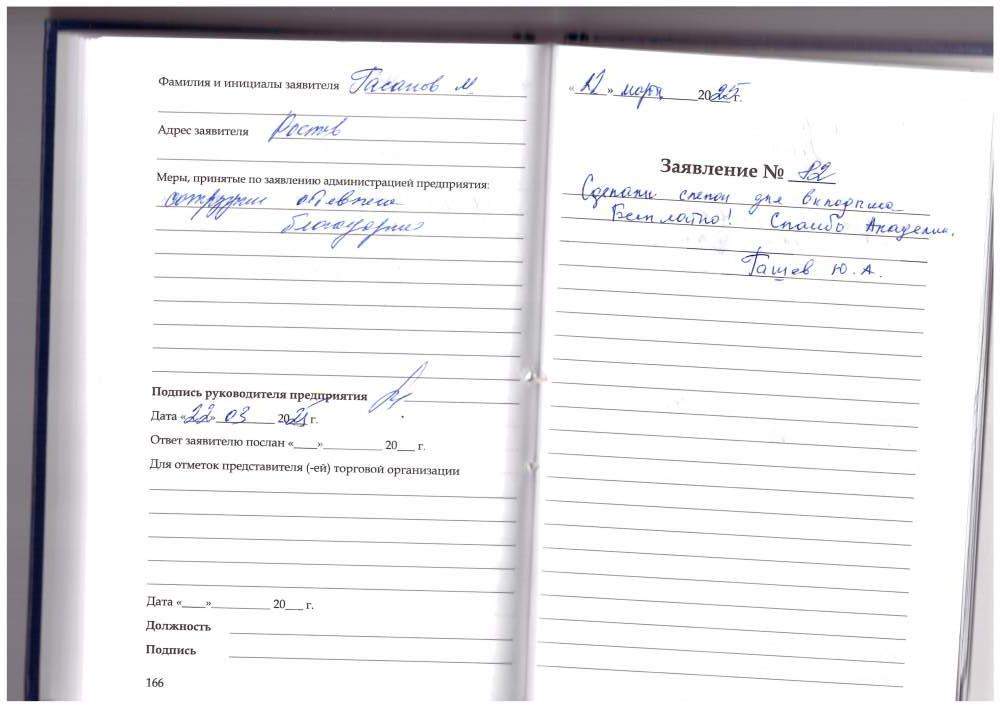 Фамилия и инициалы заявителя Гасанов М
Адрес заявителя Ростов
Меры, принятые по заявлению администрацией предприятия:
объявлена
благодарность
Подпись руководителя предприятия
Дата «22» 03 2025 г.
Ответ заявителю послан «____»__________ 20___ г.
Для отметок представителя (-ей) торговой организации
Дата «____»__________ 20___ г.
Должность
Подпись
166
«12» марта 2025 г.
Заявление № 82
Сделали слепок для вкладыша
Бесплатно! Спасибо Академии.
Гашев Ю.А.